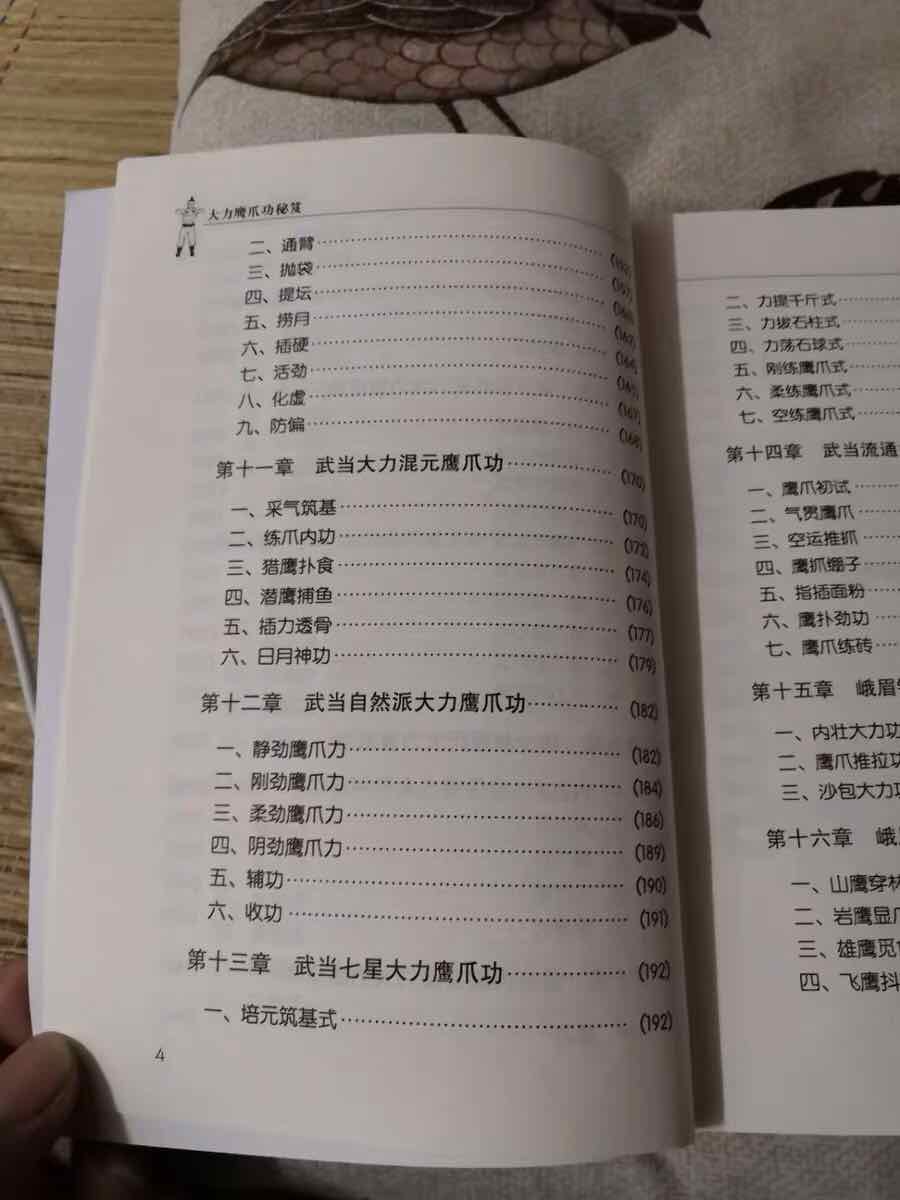 大力鹰爪功秘笈
二、通臂
三、抛袋
四、提坛
五、捞月
六、插硬
七、活劲 (165)
八、化虚 (167)
九、防偏 (168)
第十一章 武当大力混元鹰爪功 (170)
一、采气筑基 (170)
二、练爪内功 (172)
三、猎鹰扑食 (174)
四、潜鹰捕鱼 (176)
五、插力透骨 (177)
六、日月神功 (179)
第十二章 武当自然派大力鹰爪功 (182)
一、静劲鹰爪力 (182)
二、刚劲鹰爪力 (184)
三、柔劲鹰爪力 (186)
四、阴劲鹰爪力 (189)
五、辅功 (190)
六、收功 (191)
第十三章 武当七星大力鹰爪功 (192)
一、培元筑基式 (192)
4
二、力提千斤式
三、力拔石柱式
四、力荡石球式
五、刚练鹰爪式
六、柔练鹰爪式
七、空练鹰爪式
第十四章 武当流通
一、鹰爪初试
二、气贯鹰爪
三、空运推抓
四、鹰抓绷子
五、指插面粉
六、鹰扑劲功
七、鹰爪练砖
第十五章 峨眉
一、内壮大力功
二、鹰爪推拉功
三、沙包大力功
第十六章 峨
一、山鹰穿林
二、岩鹰显爪
三、雄鹰觅
四、飞鹰抖